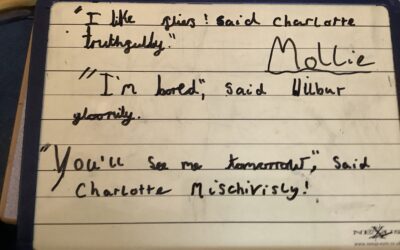 "I like flies! said Charlotte
truthfully."
Mollie
"I'm bored", said Wilbur
gloomily.
"You'll see me tomorrow", said
Charlotte Mischivisly!
NEXUS